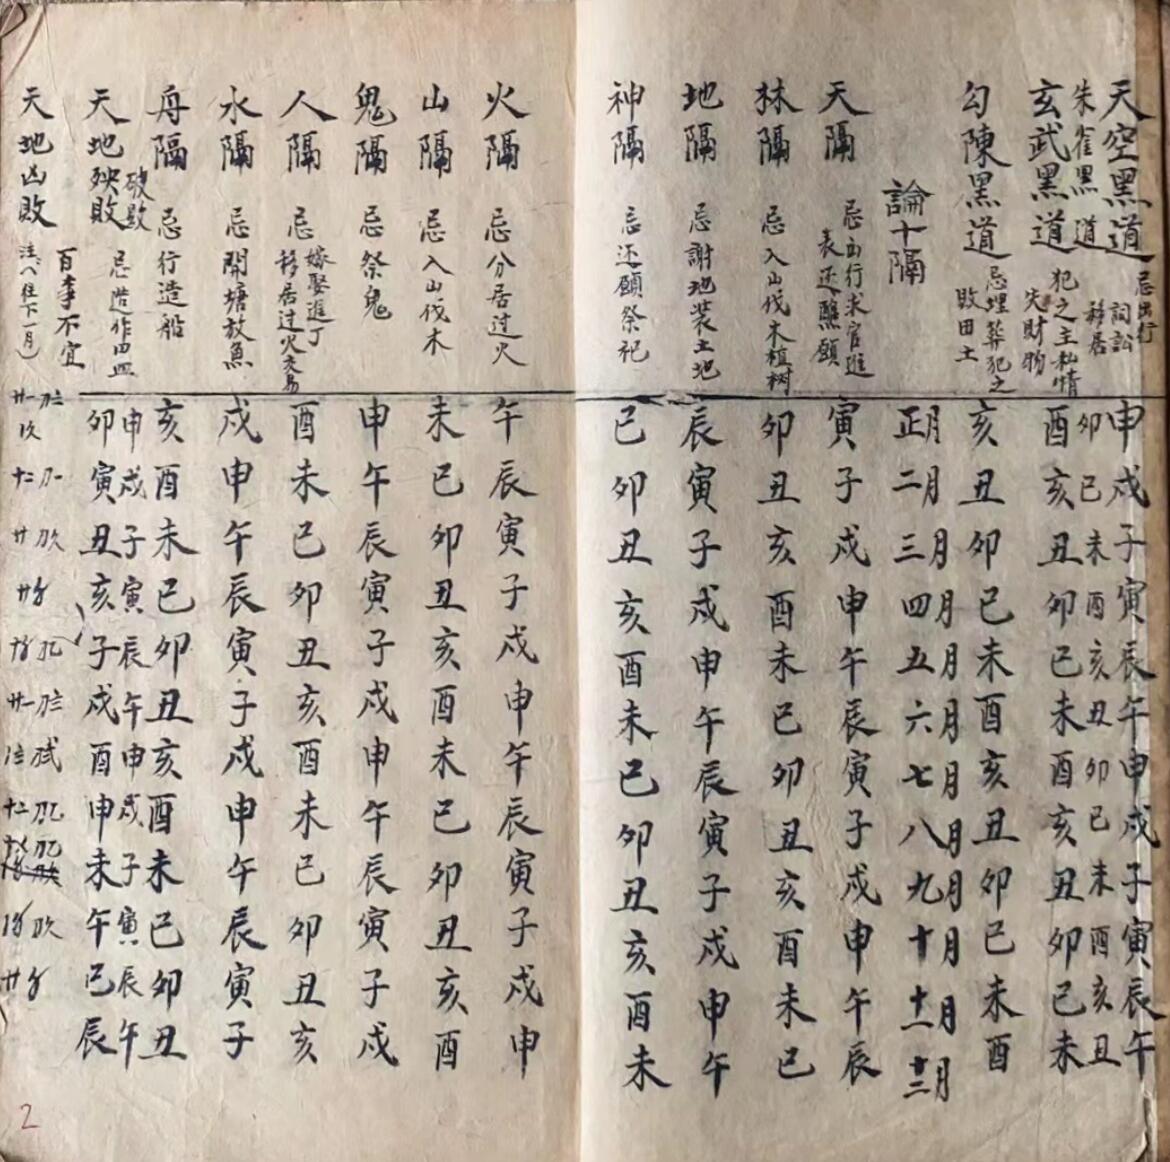 天空黑道 忌出行詞訟移居 申戌子寅辰午申戌子寅辰午
朱雀黑道 卯巳未酉亥丑卯巳未酉亥丑
玄武黑道 犯之主私情失財物 酉亥丑卯巳未酉亥丑卯巳未
勾陳黑道 忌埋葬犯之敗田土 亥丑卯巳未酉亥丑卯巳未酉
論十隔 正月二月三月四月五月六月七月八月九月十月十一月十二月
天隔 忌出行求官進表还醮願 寅子戌申午辰寅子戌申午辰
林隔 忌入山伐木植树 卯丑亥酉未巳卯丑亥酉未巳
地隔 忌謝地装土地 辰寅子戌申午辰寅子戌申午
神隔 忌还願祭祀 巳卯丑亥酉未巳卯丑亥酉未
火隔 忌分居过火 午辰寅子戌申午辰寅子戌申
山隔 忌入山伐木 未巳卯丑亥酉未巳卯丑亥酉
鬼隔 忌祭鬼 申午辰寅子戌申午辰寅子戌
人隔 忌嫁娶進丁移居过火交易 酉未巳卯丑亥酉未巳卯丑亥
水隔 忌開塘放魚 戌申午辰寅子戌申午辰寅子
舟隔 忌行造船 亥酉未巳卯丑亥酉未巳卯丑
破敗 申戌子寅辰午申戌子寅辰午
天地殃敗 忌造作 卯寅丑亥子戌酉申未午巳辰
天地凶敗 百事不宜
2